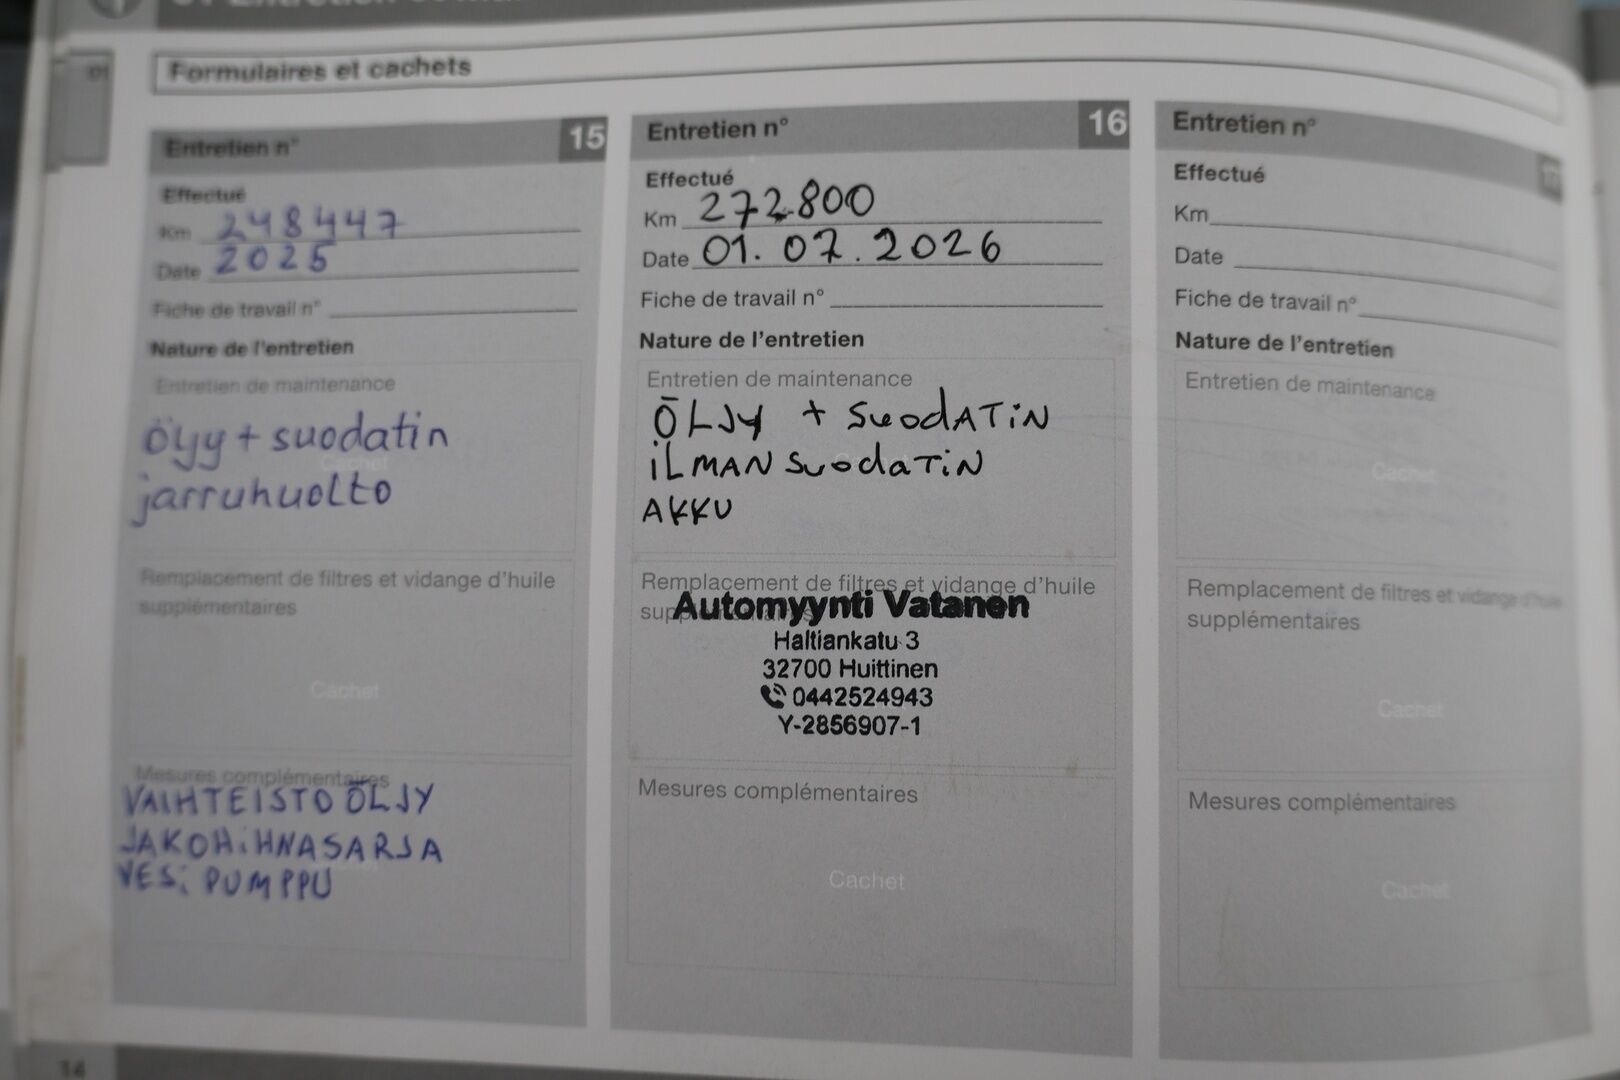 Formulaires et cachets
Entretien n° 15
Effectué
Km 248447
Date 2025
Fiche de travail n°
Nature de l'entretien
Entretien de maintenance
öljy + suodatin
Cachet
jarruhuolto
Remplacement de filtres et vidange d'huile
supplémentaires
Cachet
Mesures complémentaires
VAIHTEISTO ÖLJY
JAKOHiHNASARJA
VESi PUMPPU
14
Entretien n° 16
Effectué
Km 272.800
Date 01.07.2026
Fiche de travail n°
Nature de l'entretien
Entretien de maintenance
ÖLJY + SuodATiN
iLMANSuodaTiN
AKKU
Remplacement de filtres et vidange d'huile
Automyynti Vatanen
Haltiankatu 3
32700 Huittinen
0442524943
Y-2856907-1
Mesures complémentaires
Cachet
Entretien n° 17
Effectué
Km
Date
Fiche de travail n°
Nature de l'entretien
Entretien de maintenance
Cachet
Remplacement de filtres et vidange d'huile
supplémentaires
Cachet
Mesures complémentaires
Cachet